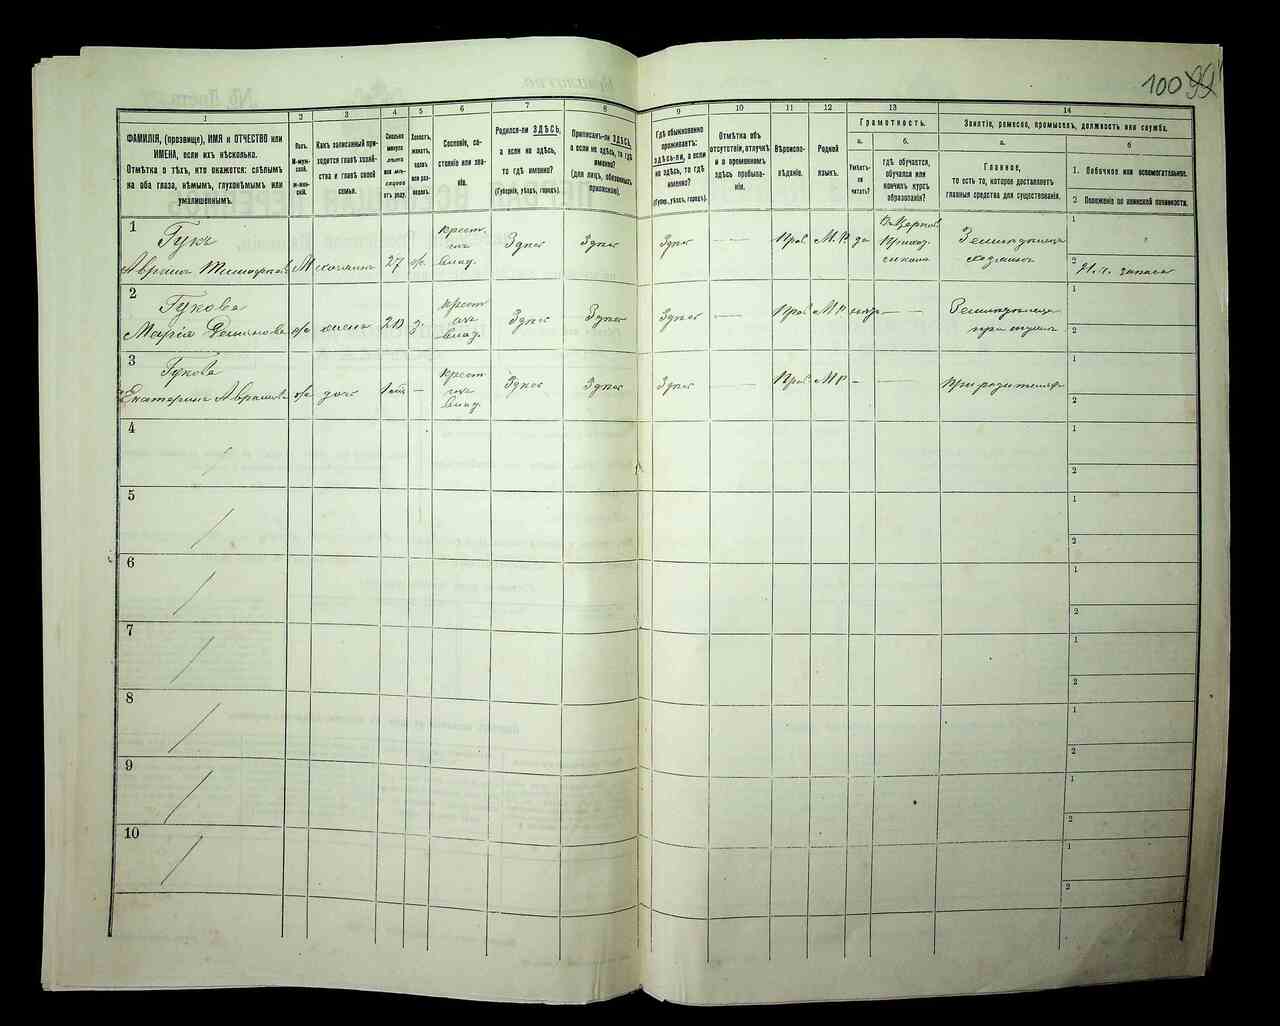 100 99
1 2 3 4 5 6 7 8 9 10 11 12 13 14
ФАМИЛІЯ, (прозвище), ИМЯ и ОТЧЕСТВО или
ИМЕНА, если ихъ нѣсколько.
Отмѣтка о тѣхъ, кто окажется: слѣпымъ
на оба глаза, нѣмымъ, глухонѣмымъ или
умалишеннымъ.
Полъ.
М-муж-
ской.
Ж-жен-
скій.
Какъ записанный при-
ходится главѣ хозяй-
ства и главѣ своей
семьи.
Сколько
минуло
лѣтъ
или мѣ-
сяцевъ
отъ роду.
Холостъ,
женатъ,
вдовъ
или раз-
веденъ.
Сословіе, со-
стояніе или зва-
ніе.
Родился-ли ЗДѢСЬ,
а если не здѣсь,
то гдѣ именно?
(Губернія, уѣздъ, городъ).
Приписанъ-ли ЗДѢСЬ,
а если не здѣсь, то гдѣ
именно?
(для лицъ, обязанныхъ
припискою).
Гдѣ обыкновенно
проживаетъ:
ЗДѢСЬ-ли, а если
не здѣсь, то гдѣ
именно?
(Губерн., уѣздъ, городъ).
Отмѣтка объ
отсутствіи, отлучкѣ
и о временномъ
здѣсь пребыва-
ніи.
Вѣроиспо-
вѣданіе.
Родной
языкъ.
Грамотность.
а.
Умѣетъ-
ли
читать?
б.
гдѣ обучается,
обучался или
кончилъ курсъ
образованія?
Занятіе, ремесло, промыселъ, должность или служба.
а.
Главное,
то есть то, которое доставляетъ
главныя средства для существованія.
б
1. Побочное или вспомогательное.
2 Положеніе по воинской повинности.
1
Гукъ
Аврамъ М хозяинъ 27 ж.
крест.
Здѣсь Здѣсь Здѣсь — — Прав. М.Р. да
Приход.
хозяинъ
1
2
запаса
2
Гукова
Марія ж жена 20 з.
крест
Здѣсь Здѣсь Здѣсь — — Прав М.Р. — —
1
2
3
Гукова
Екатерина Аврамова ж дочь — 
крест
Здѣсь Здѣсь Здѣсь — Прав М.Р. — —
при родителяхъ
1
2
4 /
1
2
5 /
1
2
6 /
1
2
7 /
1
2
8 /
1
2
9 /
1
2
10 /
1
2